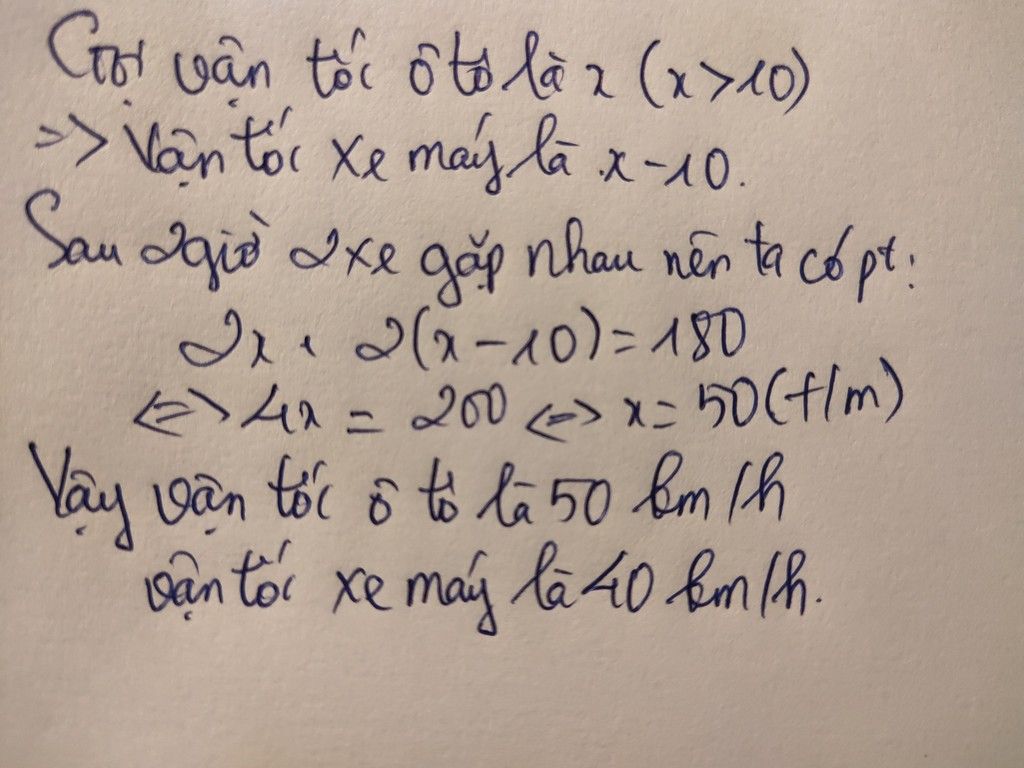 Gọi vận tốc ô tô là x (x>10)
=> Vận tốc xe máy là x-10.
Sau 2 giờ 2 xe gặp nhau nên ta có pt:
2x + 2(x-10)=180
<=> 4x = 200 <=> x= 50 (t/m)
Vậy vận tốc ô tô là 50 km/h
vận tốc xe máy là 40 km/h.